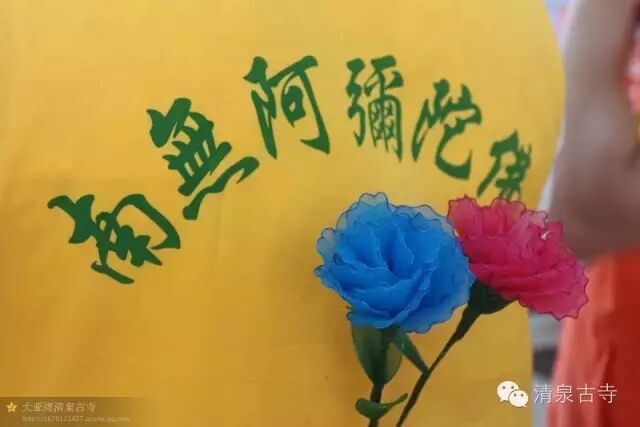 南無阿彌陀佛
大亚湾清泉古寺
http://1670122427.qzone.qq.com
清泉古寺